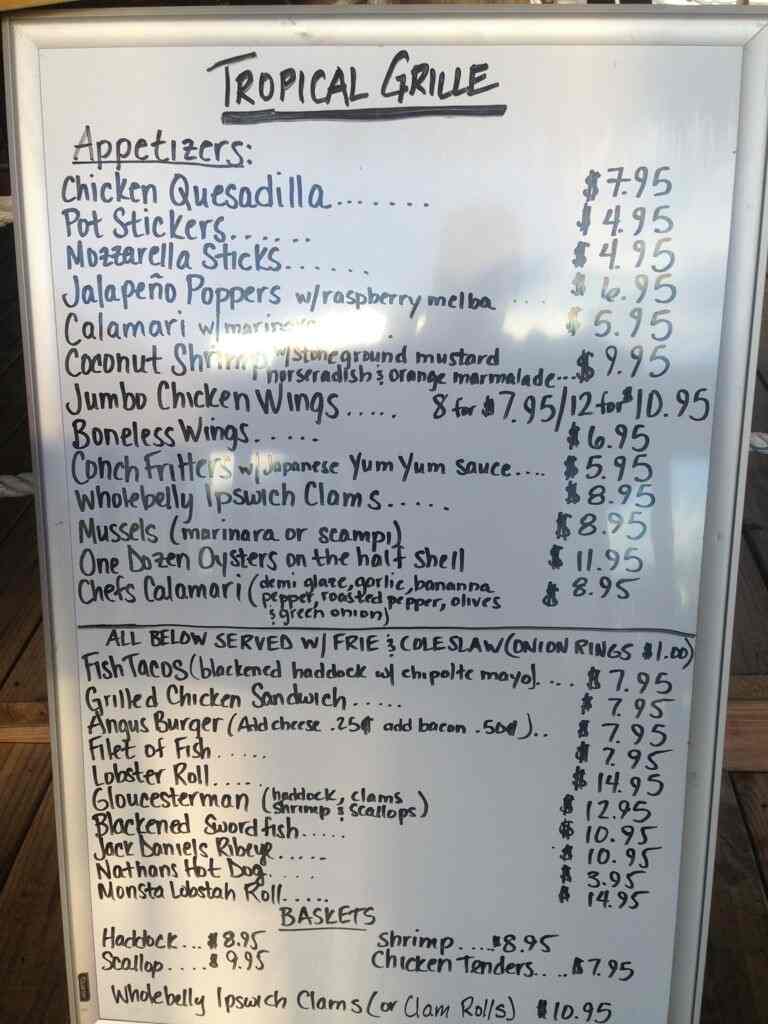 TROPICAL GRILLE
Appetizers:
Chicken Quesadilla....... $7.95
Pot Stickers...... $4.95
Mozzarella Sticks...... $4.95
Jalapeño Poppers w/raspberry melba ... $6.95
Calamari w/marinara . $5.95
Coconut Shrimp w/stoneground mustard
horseradish & orange marmalade... $9.95
Jumbo Chicken Wings..... 8 for $7.95/12 for $10.95
Boneless Wings...... $6.95
Conch Fritters w/Japanese Yum Yum sauce.... $5.95
Wholebelly Ipswich Clams..... $8.95
Mussels (marinara or scampi) $8.95
One Dozen Oysters on the half shell $11.95
Chefs Calamari (demi glaze, garlic, bananna $8.95
pepper, roasted pepper, olives
& green onion)
ALL BELOW SERVED W/ FRIE & COLESLAW (ONION RINGS $1.00)
Fish Tacos (blackened haddock w/ chipolte mayo).... $7.95
Grilled Chicken Sandwich..... $7.95
Angus Burger (Add cheese .25¢ add bacon .50¢).. $7.95
Filet of Fish..... $7.95
Lobster Roll..... $14.95
Gloucesterman (haddock, clams
shrimp & scallops) $12.95
Blackened Swordfish..... $10.95
Jack Daniels Ribeye..... $10.95
Nathans Hot Dog..... $3.95
Monsta Lobstah Roll..... $14.95
BASKETS
Haddock... $8.95 Shrimp.... $8.95
Scallop.... $9.95 Chicken Tenders.... $7.95
Wholebelly Ipswich Clams (or Clam Rolls) $10.95